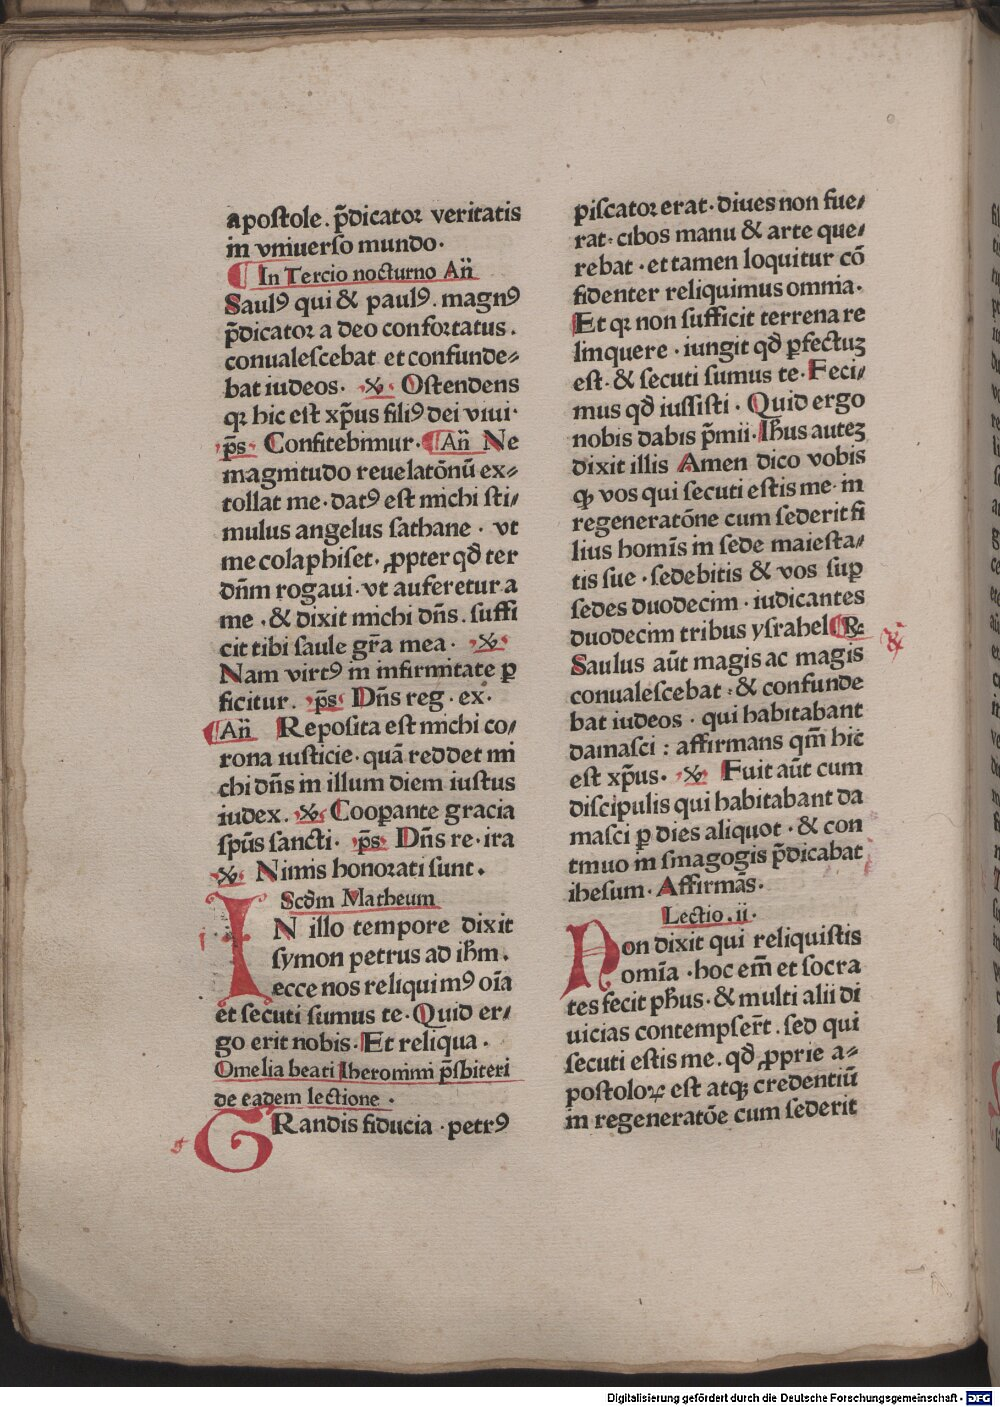 apostole. p̄dicator veritatis
in vniuerso mundo·
In Tercio nocturno An̄
Saulꝰ qui & paulꝰ. magnꝰ
p̄dicator a deo confortatus.
conualescebat et confunde⸗
bat iudeos· ℣ Ostendens
qꝛ hic est xp̄us filiꝰ dei viui·
p̄s Confitebimur· An̄ Ne
magnitudo reuelatōnū ex⸗
tollat me· datꝰ est michi sti⸗
mulus angelus sathane· vt
me colaphiset· ꝓpter qđ ter
dn̄m rogaui· vt auferetur a
me· & dixit michi dn̄s. suffi
cit tibi saule gr̄a mea· ℣
Nam virtꝰ in infirmitate ꝑ
ficitur. p̄s Dn̄s reg· ex·
An̄ Reposita est michi co⸗
rona iusticie· quā reddet mi
chi dn̄s in illum diem iustus
iudex. ℣ Cooꝑante gracia
spūs sancti· p̄s Dn̄s re· ira
℣ Nimis honorati sunt.
Scđm Matheum
IN illo tempore dixit
symon petrus ad ihm̄.
ecce nos reliquimꝰ oīa
et secuti sumus te· Quid er⸗
go erit nobis· Et reliqua·
Omelia beati Iheronimi p̄sbiteri
de eadem lectione·
GRandis fiducia· petrꝰ
piscator erat· diues non fue⸗
rat· cibos manu & arte que⸗
rebat· et tamen loquitur cō
fidenter reliquimus omnia·
Et qꝛ non sufficit terrena re
linquere· iungit qđ ꝑfectuꝫ
est· & secuti sumus te· Feci⸗
mus qđ iussisti· Quid ergo
nobis dabis p̄mii· Ihus auteꝫ
dixit illis Amen dico vobis
ꝙ vos qui secuti estis me· in
regeneratōne cum sederit fi
lius homīs in sede maiesta⸗
tis sue· sedebitis & vos suꝑ
sedes duodecim· iudicantes
duodecim tribus ysrahel ℟
&
Saulus aūt magis ac magis
conualescebat· & confunde
bat iudeos· qui habitabant
damasci: affirmans qm̄ hic
est xp̄us· ℣ Fuit aūt cum
discipulis qui habitabant da
masci ꝑ dies aliquot· & con
tinuo in sinagogis p̄dicabat
ihesum· Affirmās·
Lectio .ii·
Non dixit qui reliquistis
omīa· hoc em̄ et socra
tes fecit ph̄us· & multi alii di
uicias contempser̄t. sed qui
secuti estis me. qđ ꝓprie a⸗
postoloꝝ est atqꝫ credentiū
in regeneratōe cum sederit
Digitalisierung gefördert durch die Deutsche Forschungsgemeinschaft - DFG